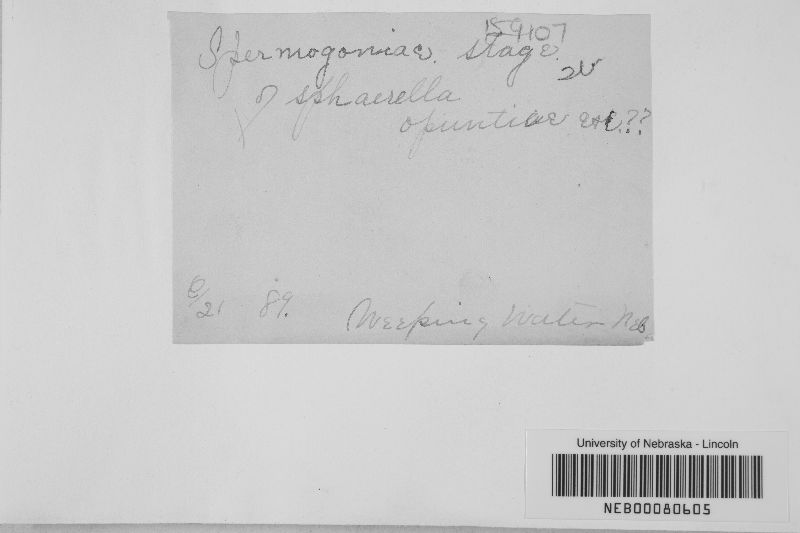 159107
Spermogoniae. stage.
of sphaerella
opuntiae E+E.??
6/21 '89. Weeping Water Neb
University of Nebraska - Lincoln
NEB00080605